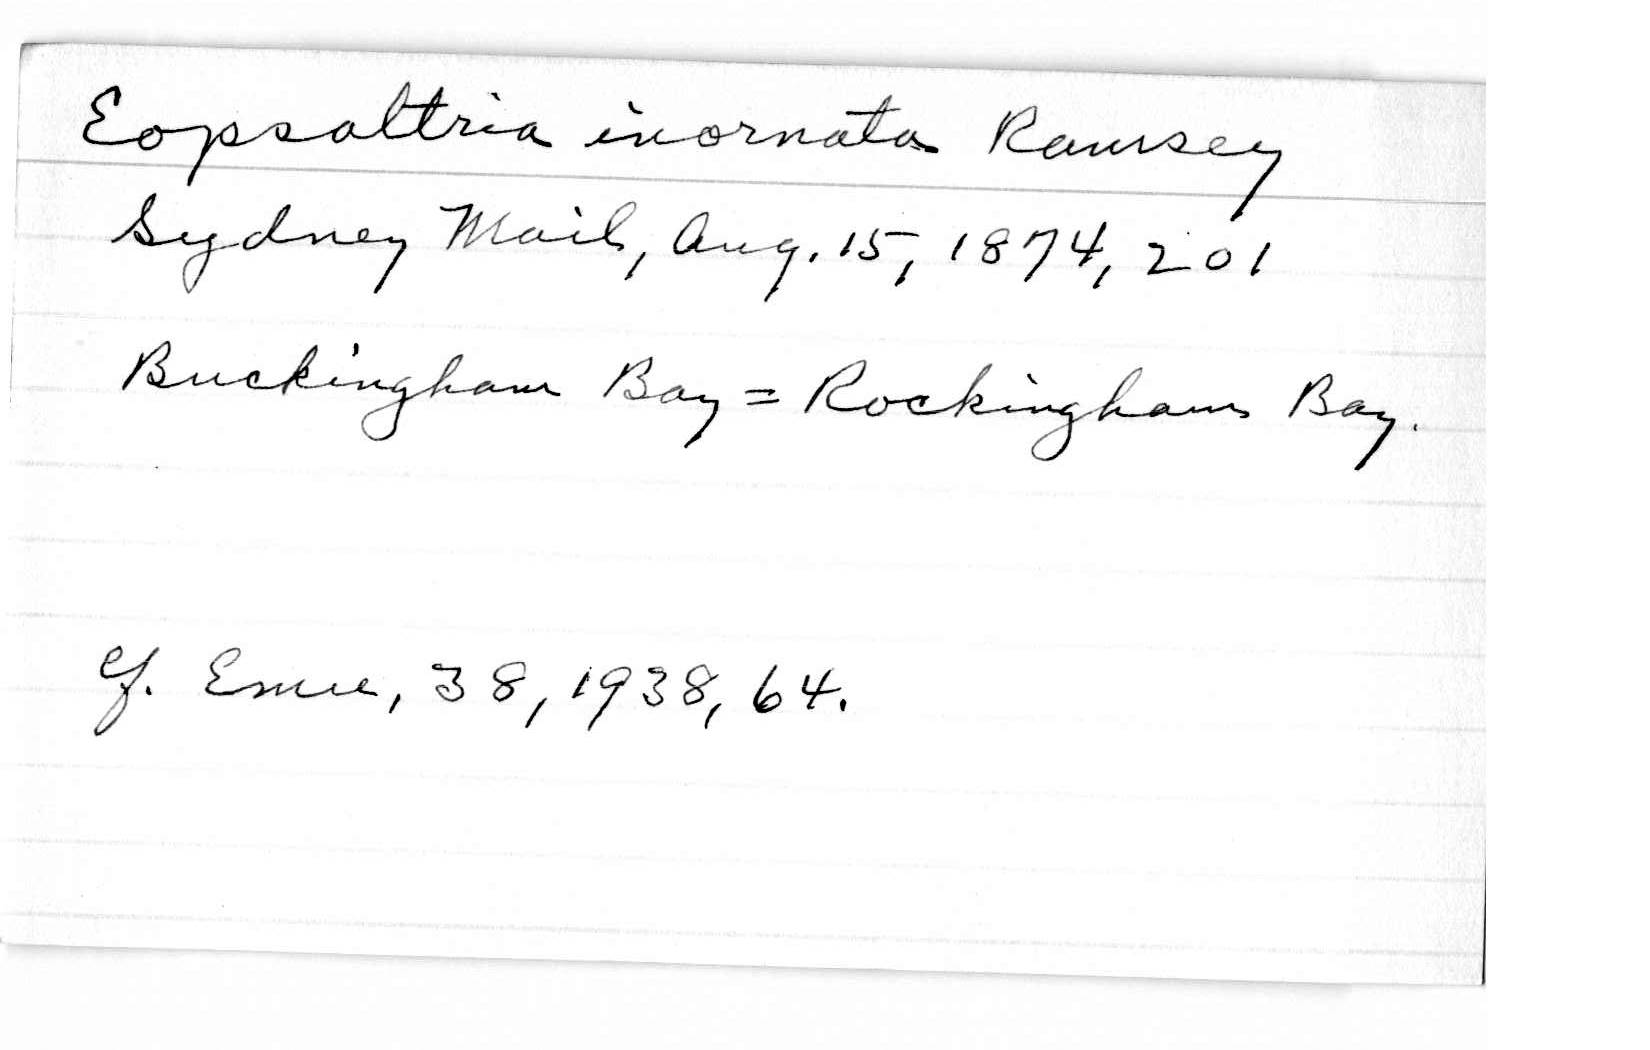 Eopsaltria inornata Ramsey
Sydney Mail, Aug. 15, 1874, 201
Buckingham Bay = Rockingham Bay.
cf. Emu, 38, 1938, 64.